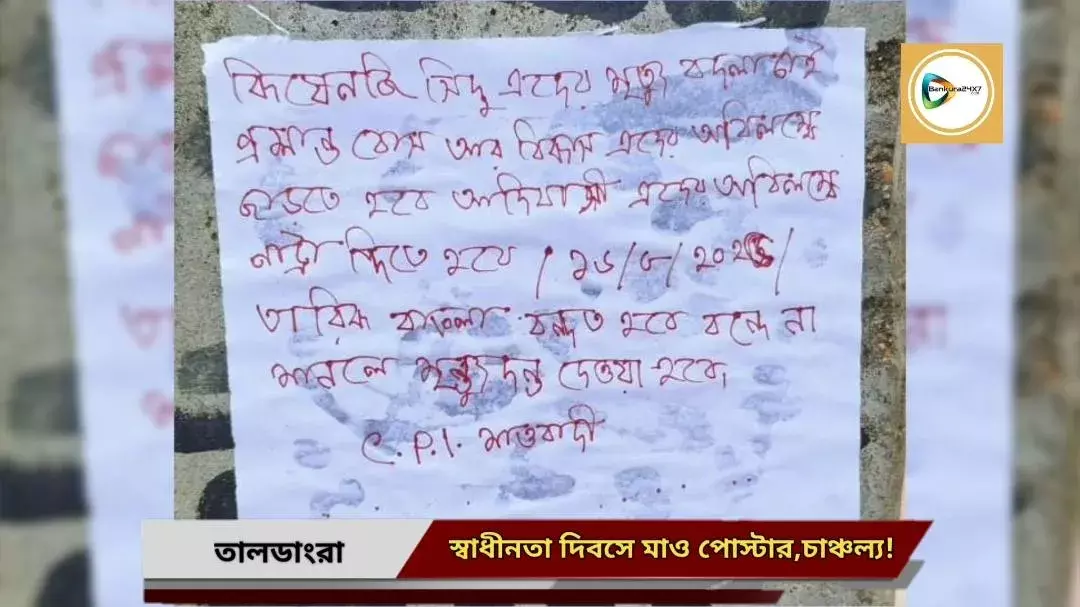 কিষেনজি সিদু এদের মৃত্যু বদলা চাই
প্রশান্ত বোস আর বিকাশ এদের অবিলম্বে
ছাড়তে হবে আদিবাসী এদের অবিলম্বে
দিতে হবে
তারিখ বাংলা হবে বন্দে না
মানলে মৃত্যুদন্ড দেওয়া হবে
C.P.I. মাওবাদী
Bankura24X7
তালডাংরা
স্বাধীনতা দিবসে মাও পোস্টার,চাঞ্চল্য!